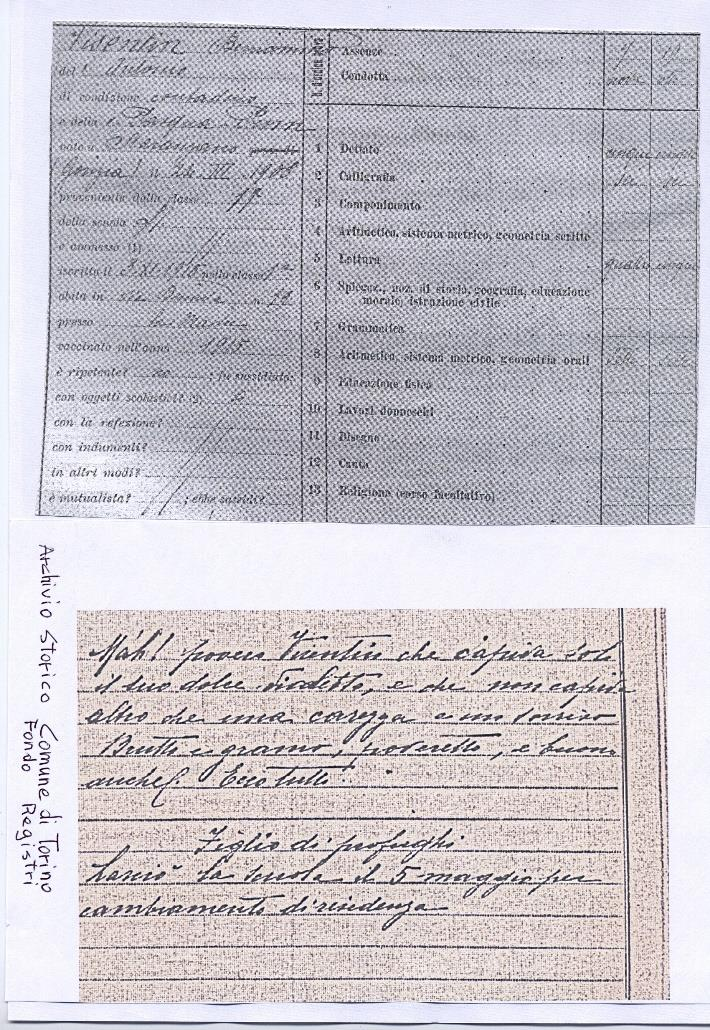 Visentin Beniamino
del f. Antonio
di condizione contadino
e della f. Pasqua
nato a
(Gorizia) il 24. III. 1908
proveniente dalla classe 1ª
della scuola
e ammesso (1) //
iscritta il 3.XI.1915 nella classe 1ª
abita in n. 20
presso la
vaccinato nell'anno 1915
è ripetente? no ; fu sussidiato:
con oggetti scolastici? (2)
con la refezione?
con indumenti?
in altri modi?
è mutualista? ; ebbe sussidi?
Assenze
Condotta
1 Dettato cinque cinque
2 Calligrafia sei sei
3 Componimento
4 Aritmetica, sistema metrico, geometria scritte
5 Lettura quattro cinque
6 Spiegaz., noz. di storia, geografia, educazione
morale, istruzione civile
7 Grammatica
8 Aritmetica, sistema metrico, geometria orali
9 Educazione fisica
10 Lavori donneschi
11 Disegno
12 Canto
13 Religione (corso facoltativo)
Archivio Storico Comune di Torino
Fondo Registri
Mah! povero Visentin che capiva solo
il suo dolce dialetto, e che non capiva
altro che una carezza e un sorriso
Brutto e gramo, poveretto, e buono
anche. Ecco tutto!
Figlio di profughi
Lasciò la scuola il 5 maggio per
cambiamento di residenza